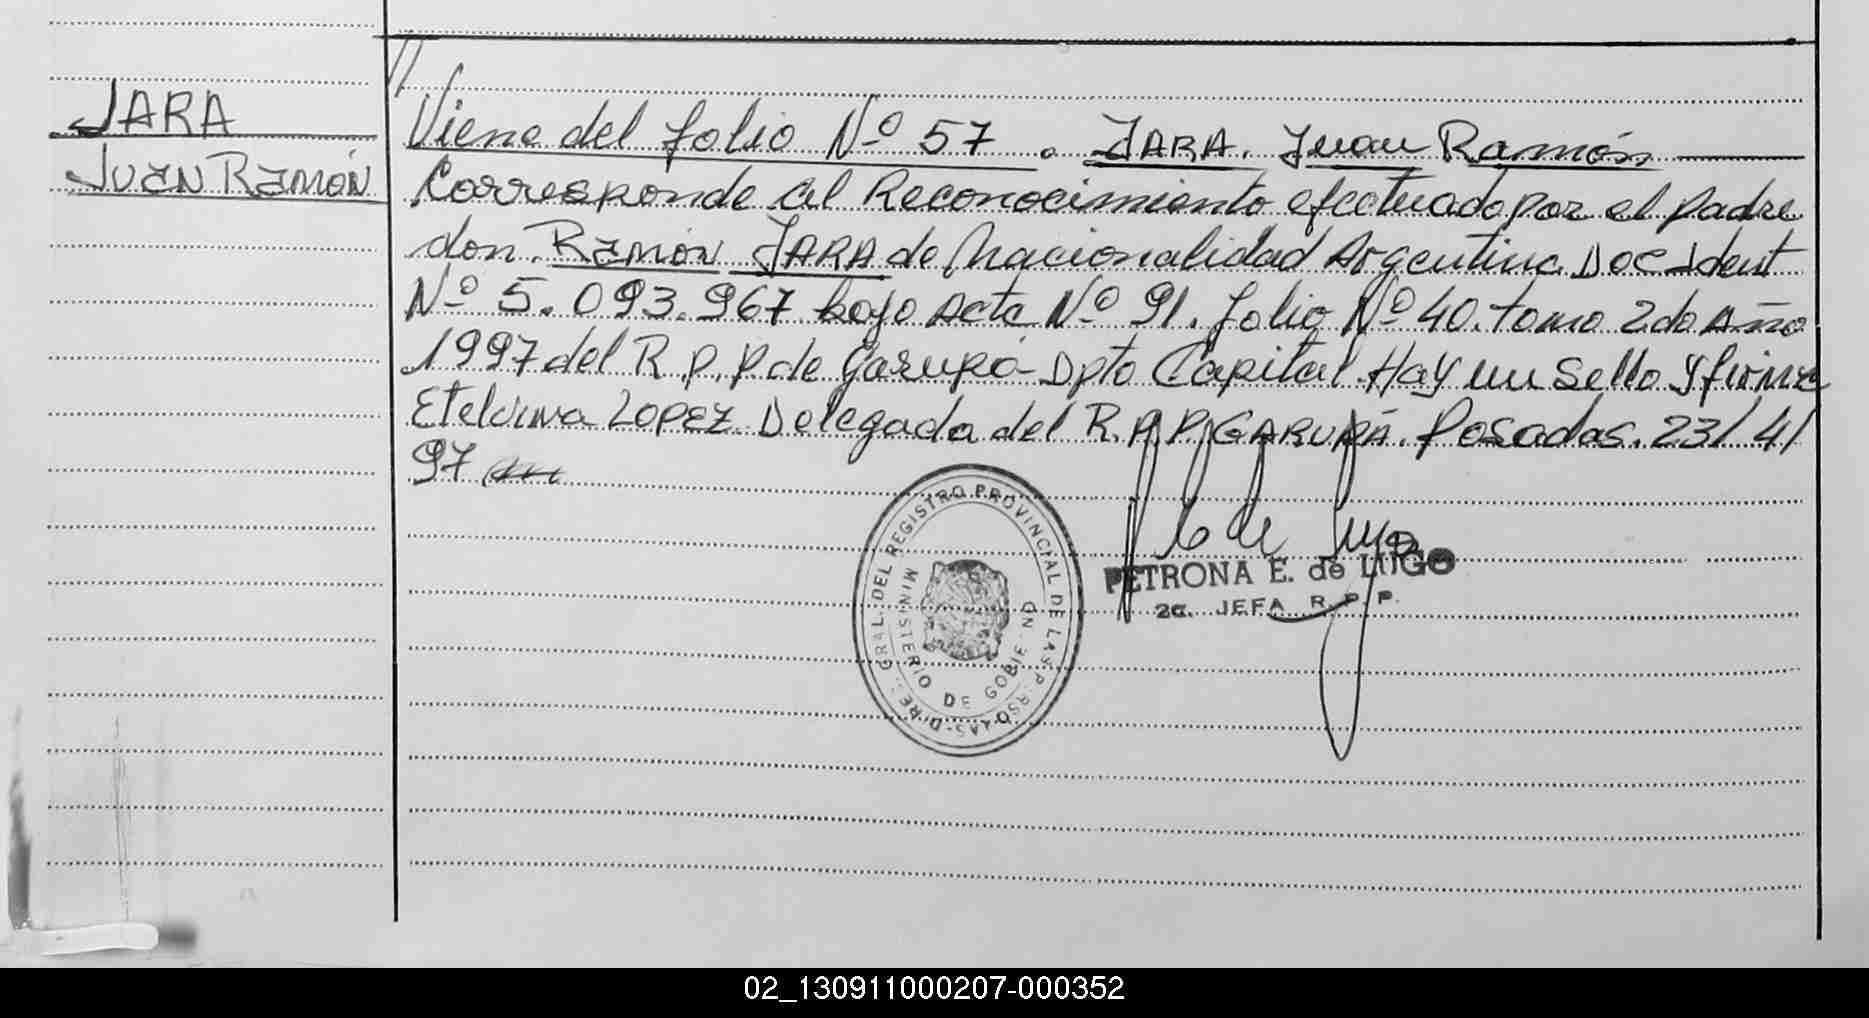 JARA
Juan Ramón
Viene del folio Nº 57. JARA. Juan Ramón
Corresponde al Reconocimiento efectuado por el padre
don. Ramón JARA de Nacionalidad Argentina Doc Ident
Nº 5.093.967 bajo Acta Nº 91. folio Nº 40. tomo 2do Año
1997 del R.P.P de Garupá - Dpto Capital. Hay un Sello y firma
Etelvina Lopez. Delegada del R.P.P. GARUPÁ. Posadas. 23/4/
97
DIREC. GRAL. DEL REGISTRO PROVINCIAL DE LAS PERSONAS
MINISTERIO DE GOBIERNO
PETRONA E. de LUGO
2a. JEFA R.P.P.
02_130911000207-000352